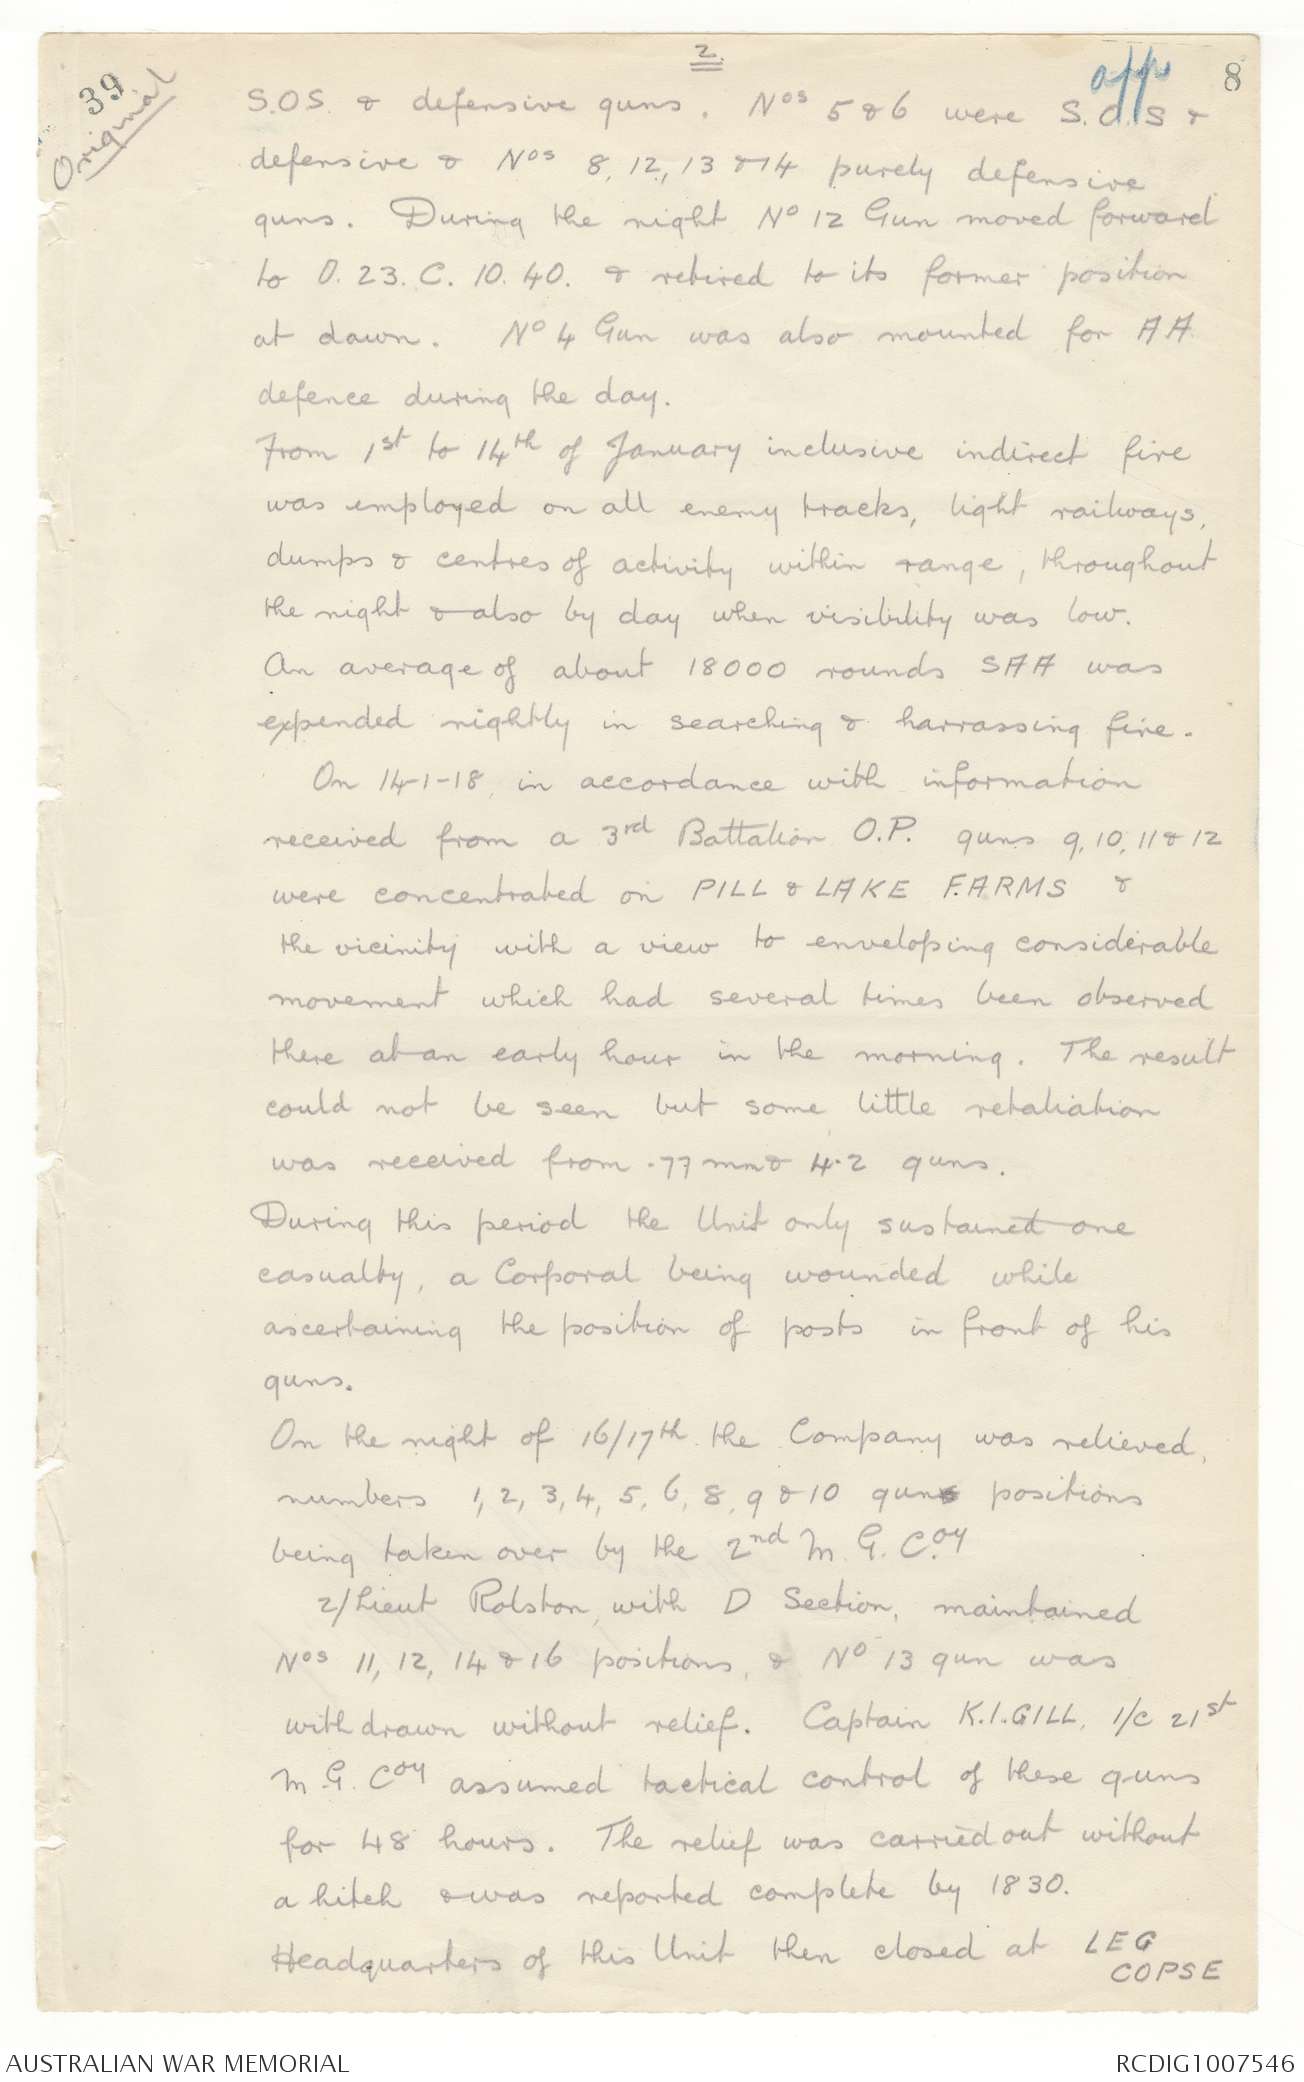 2.
app 8
39
Original
S.O.S. & defensive guns. Nos 5 & 6 were S.O.S &
defensive & Nos 8, 12, 13 & 14 purely defensive
guns. During the night No 12 Gun moved forward
to O. 23. C. 10. 40. & retired to its former position
at dawn. No 4 Gun was also mounted for AA
defence during the day.
From 1st to 14th of January inclusive indirect fire
was employed on all enemy tracks, light railways,
dumps & centres of activity within range, throughout
the night & also by day when visibility was low.
An average of about 18000 rounds SAA was
expended nightly in searching & harrassing fire.
On 14-1-18, in accordance with information
received from a 3rd Battalion O.P. guns 9, 10, 11 & 12
were concentrated on PILL & LAKE FARMS &
the vicinity with a view to enveloping considerable
movement which had several times been observed
there at an early hour in the morning. The result
could not be seen but some little retaliation
was received from .77 mm & 4.2 guns.
During this period the Unit only sustained one
casualty, a Corporal being wounded while
ascertaining the position of posts in front of his
guns.
On the night of 16/17th the Company was relieved,
numbers 1, 2, 3, 4, 5, 6, 8, 9 & 10 guns positions
being taken over by the 2nd M. G. Coy
2/Lieut Rolston, with D Section, maintained
Nos 11, 12, 14 & 16 positions, & No 13 gun was
withdrawn without relief. Captain K.I. GILL, 1/c 21st
M. G. Coy assumed tactical control of these guns
for 48 hours. The relief was carried out without
a hitch & was reported complete by 1830.
Headquarters of this Unit then closed at LEG
COPSE
AUSTRALIAN WAR MEMORIAL
RCDIG1007546